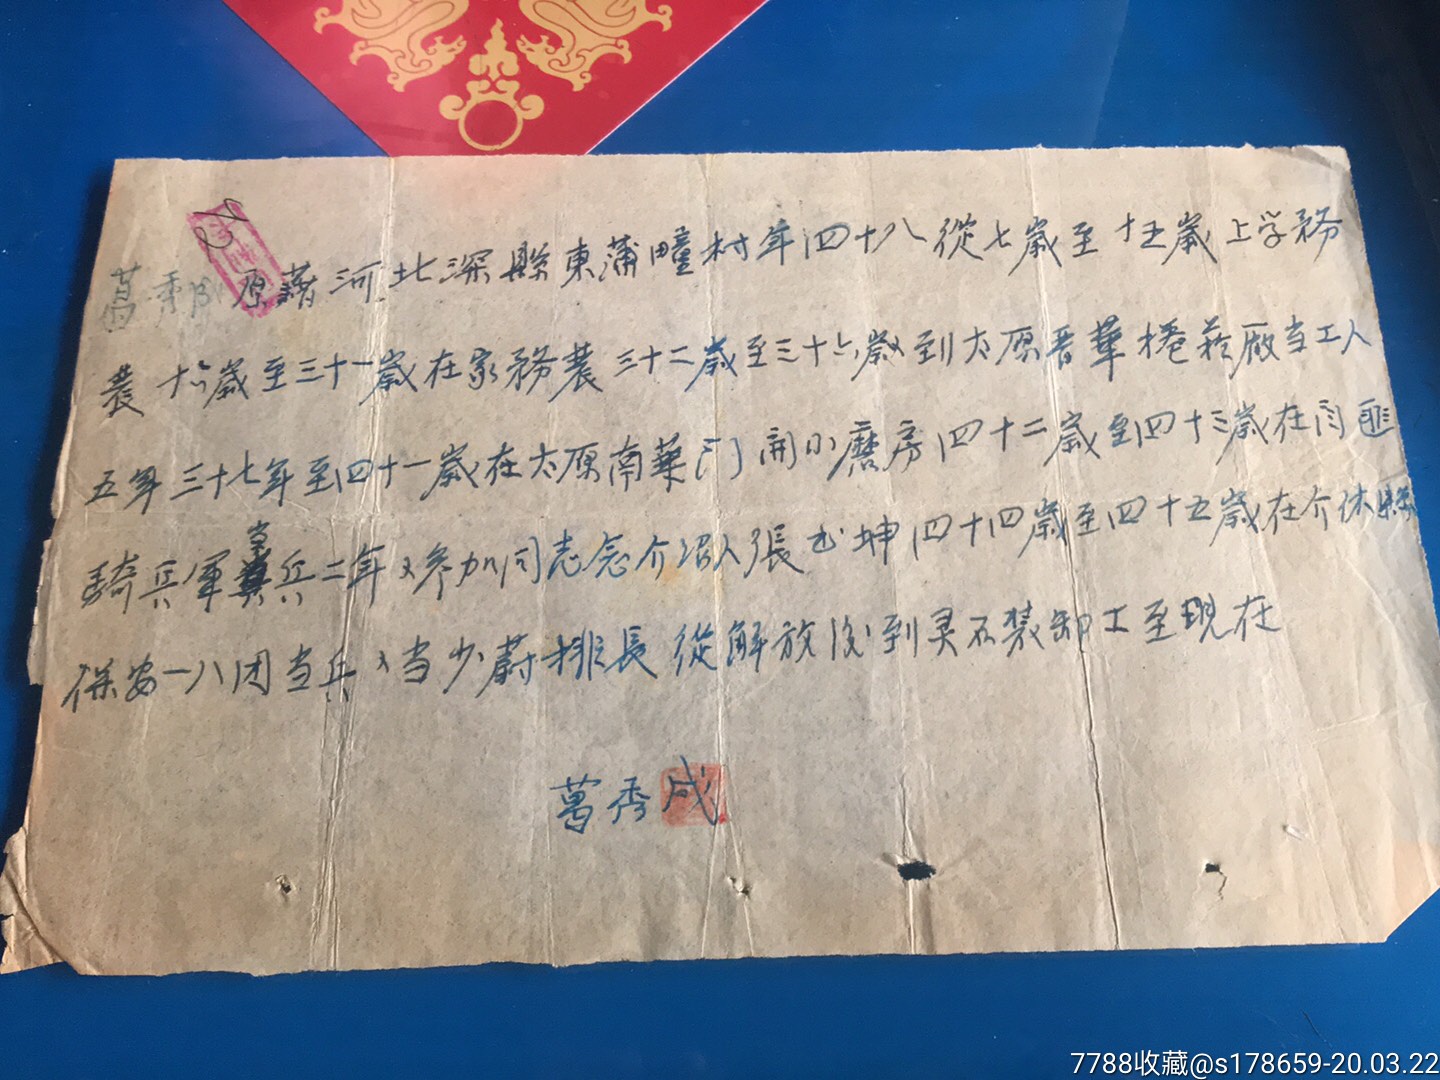 葛秀成 原籍河北深縣東蒲疃村年四十八從七歲至十五歲上学務
農 十六歲至三十一歲在家務農 三十二歲至三十六歲到太原晋華捲菸廠当工人
五年 三十七年至四十一歲在太原南華门開小磨房 四十二歲至四十三歲在闫匪
騎兵軍当兵二年 又參加同志念介绍人張 坤 四十四歲至四十五歲在介休縣
保安一八团当兵 又当少蔚排長 從解放后到灵石装卸工至现在
葛秀成
7788收藏@s178659-20.03.22